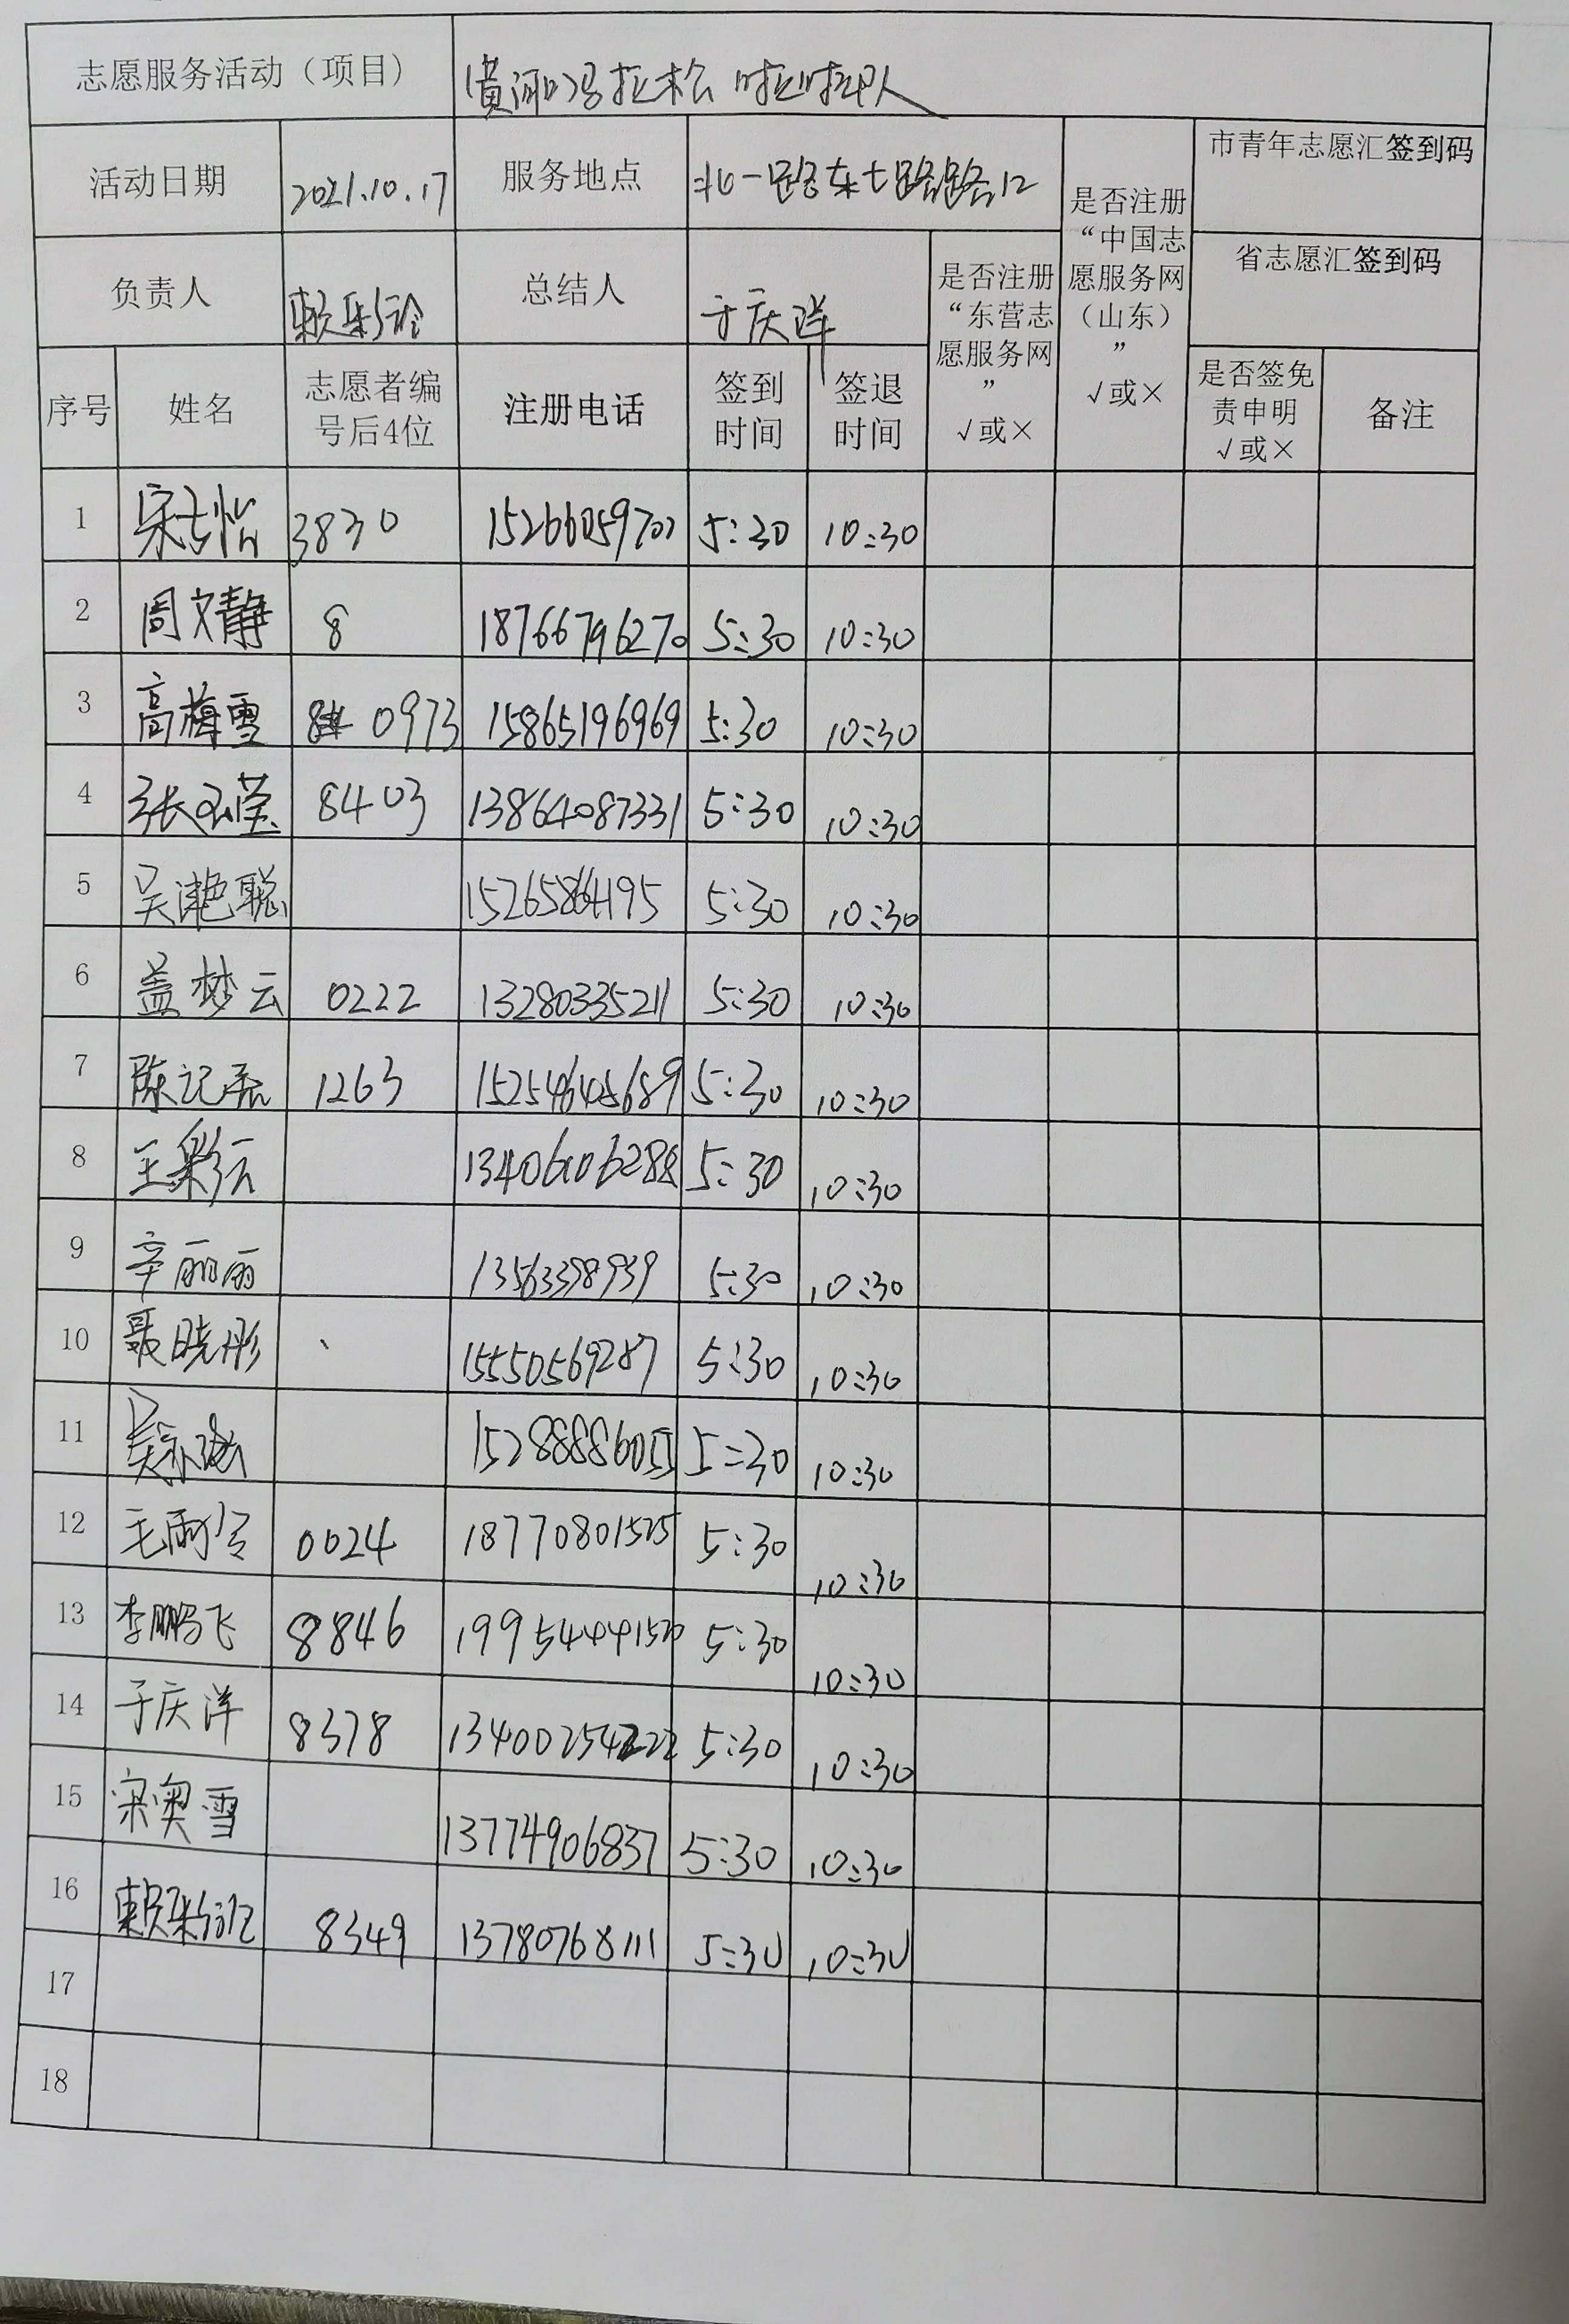 志愿服务活动（项目） 黄河口马拉松 啦啦队
活动日期 2021.10.17 服务地点 北一路东七路路口 是否注册“中国志愿服务网（山东）” √或× 市青年志愿汇签到码
负责人 总结人 于庆洋 是否注册“东营志愿服务网” √或× 省志愿汇签到码
序号 姓名 志愿者编号后4位 注册电话 签到时间 签退时间 是否签免责申明 √或× 备注
1 3830 5:30 10:30
2 周文静 8 18766796270 5:30 10:30
3 高梅雪 0973 15865196969 5:30 10:30
4 张玉莹 8403 13864087331 5:30 10:30
5 吴滟聪 5:30 10:30
6 盖梦云 0222 13280335211 5:30 10:30
7 1263 5:30 10:30
8 王彩云 13406106288 5:30 10:30
9 辛丽丽 5:30 10:30
10 聂晓彤 15550569287 5:30 10:30
11 5:30 10:30
12 毛雨 0024 18770801525 5:30 10:30
13 李鹏飞 8846 5:30 10:30
14 于庆洋 8378 13400254222 5:30 10:30
15 宋奥雪 13774906837 5:30 10:30
16 8349 13780768111 5:30 10:30
17
18